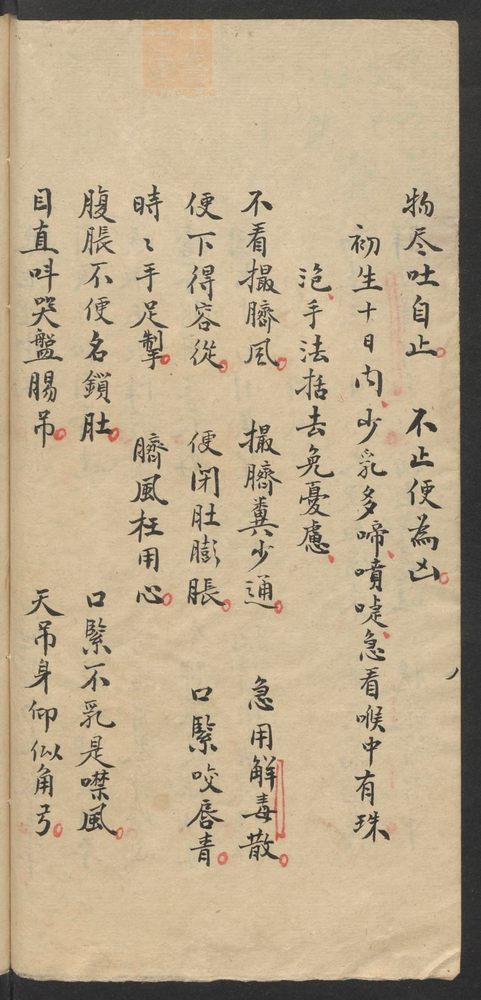 物尽吐自止。 不止便為凶。
初生十日内、少乳多啼、噴嚏、急看喉中有珠
泡、手法括去免憂慮、
不看撮臍風。 撮臍糞少通。 急用解毒散。
便下得容從。 便闭肚膨脹。 口緊咬唇青。
時〻手足掣。 臍風枉用心。
腹脹不便名鎖肚。 口緊不乳是噤風。
目直呌哭盤腸吊。 天吊身仰似角弓。